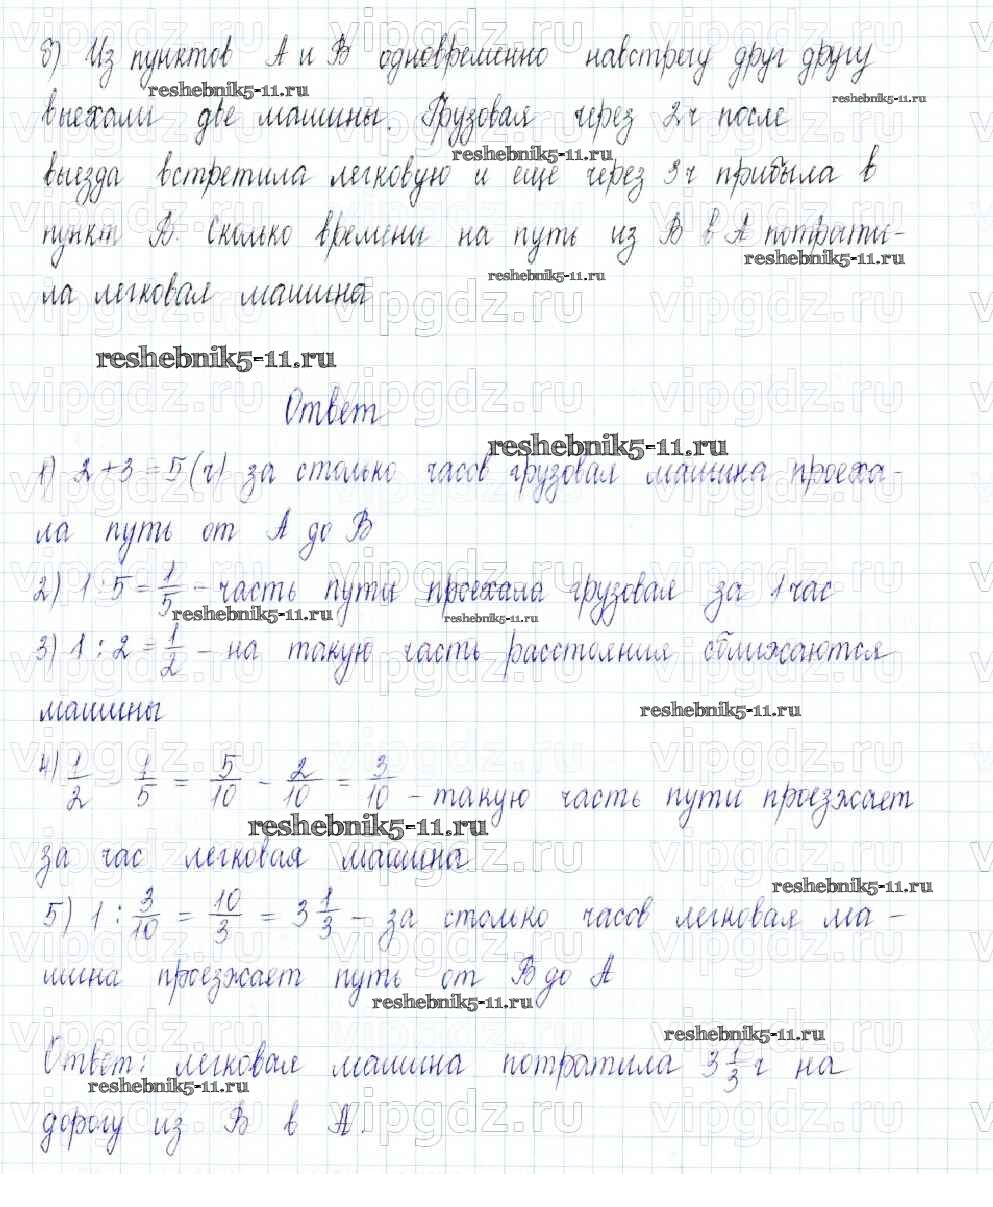 б) Из пунктов А и В одновременно навстречу друг другу
reshebnik5-11.ru
reshebnik5-11.ru
выехали две машины. Грузовая через 2ч после
reshebnik5-11.ru
выезда встретила легковую и еще через 3ч прибыла в
пункт В. Сколько времени на путь из В в А потрати-
reshebnik5-11.ru
reshebnik5-11.ru
ла легковая машина
reshebnik5-11.ru
Ответ
reshebnik5-11.ru
1) 2+3=5(ч) за столько часов грузовая машина проеха-
ла путь от А до В
2) 1:5=1/5 - часть пути проехала грузовая за 1 час
reshebnik5-11.ru
reshebnik5-11.ru
3) 1:2=1/2 - на такую часть расстояния сближаются
машины
reshebnik5-11.ru
4) 1/2 - 1/5 = 5/10 - 2/10 = 3/10 - такую часть пути проезжает
reshebnik5-11.ru
за час легковая машина
reshebnik5-11.ru
5) 1 : 3/10 = 10/3 = 3 1/3 - за столько часов легковая ма-
шина проезжает путь от В до А
reshebnik5-11.ru
reshebnik5-11.ru
Ответ: легковая машина потратила 3 1/3 ч на
reshebnik5-11.ru
дорогу из В в А.
vipgdz.ru